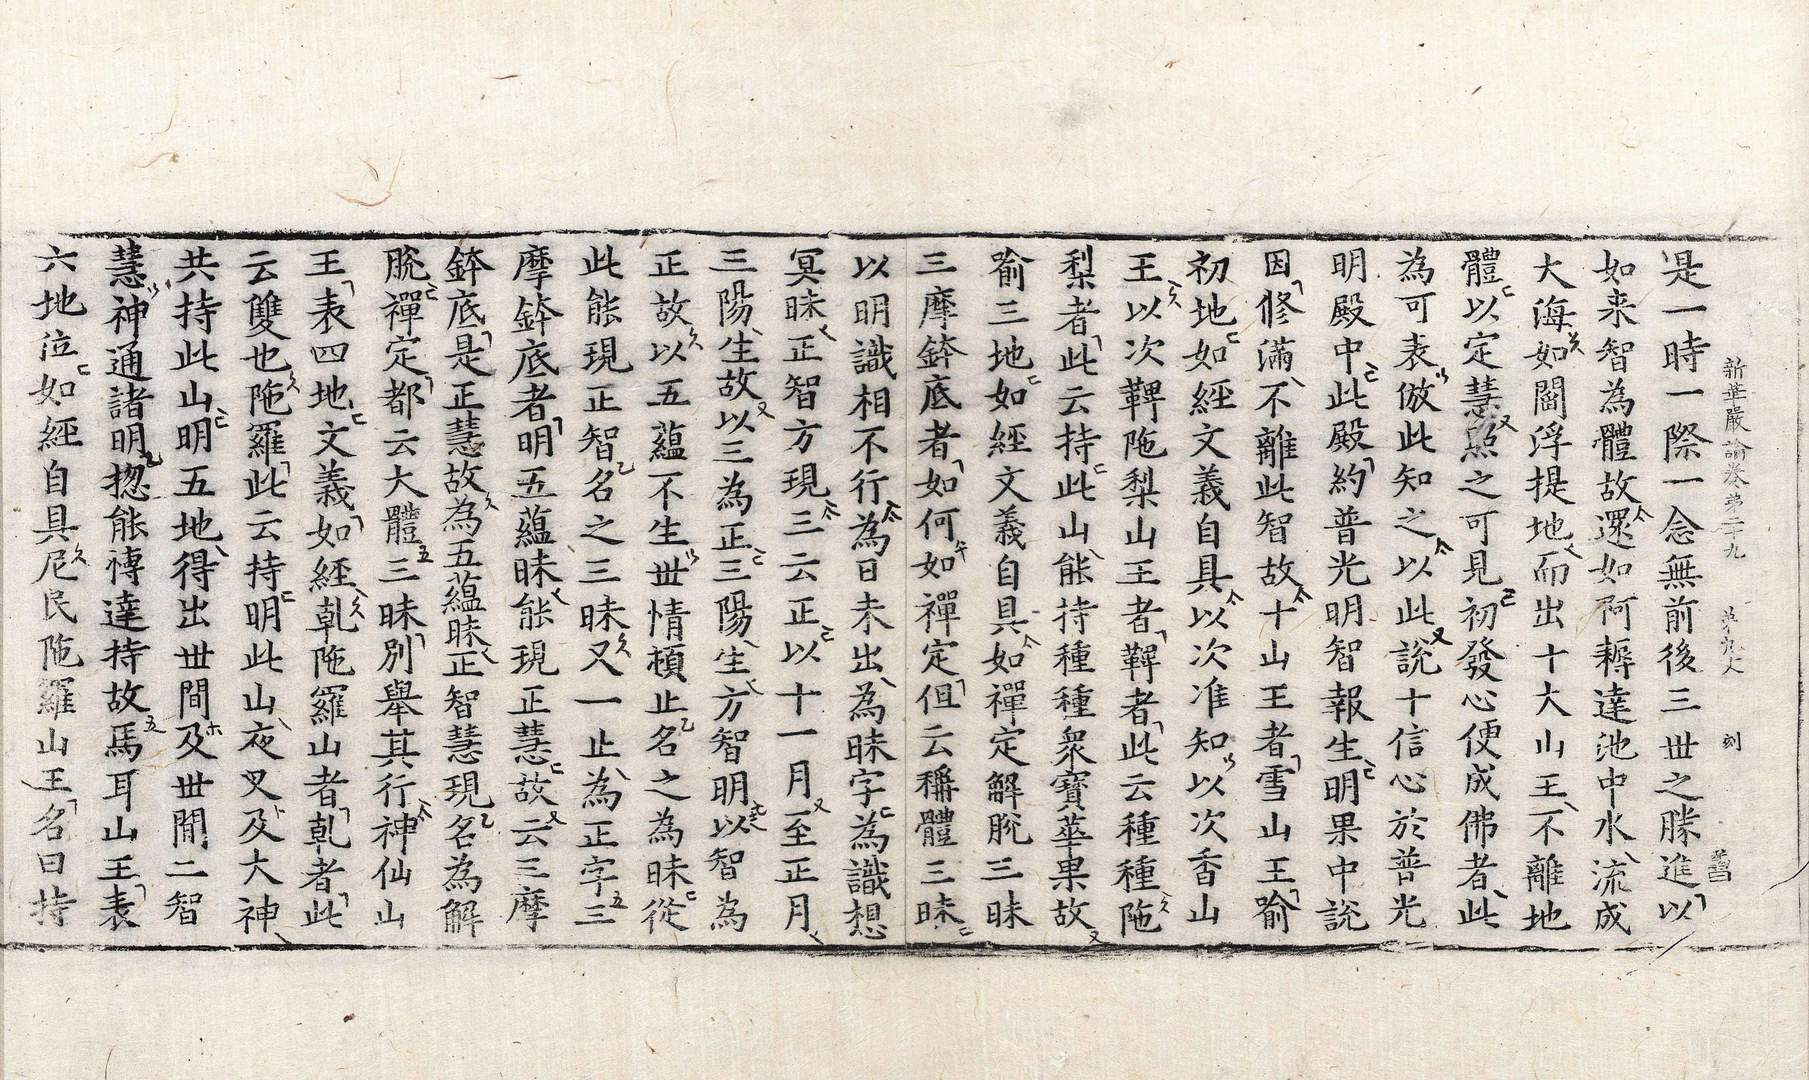 新華嚴論卷第二十九
刻
是一時一際一念無前後三世之勝進以
如来智為體故還如阿耨達池中水流成
大海如閻浮提地而出十大山王不離地
體以定慧照之可見初發心便成佛者此
為可表倣此知之以此說十信心於普光
明殿中此殿約普光明智報生明果中說
因修滿不離此智故十山王者雪山王喻
初地如經文義自具以次准知以次香山
王以次鞞陁梨山王者鞞者此云種種陁
梨者此云持此山能持種種衆寶華果故
喻三地如經文義自具如禪定解脫三昧
三摩鉢底者如何如禪定但云稱體三昧
以明識相不行為日未出為昧字為識想
冥昧正智方現三云正以十一月至正月
三陽生故以三為正三陽生方智明以智為
正故以五蘊不生世情頓止名之為昧從
此能現正智名之三昧又一止為正字三
摩鉢底者明五蘊昧能現正慧故云三摩
鉢底是正慧故為五蘊昧正智慧現名為解
脫禪定都云大體三昧別舉其行神仙山
王表四地文義如經乹陁羅山者乹者此
云雙也陁羅此云持明此山夜叉及大神
共持此山明五地得出世間及世間二智
慧神通諸明揔能慱達持故馬耳山王表
六地位如經自具尼民陁羅山王名曰持